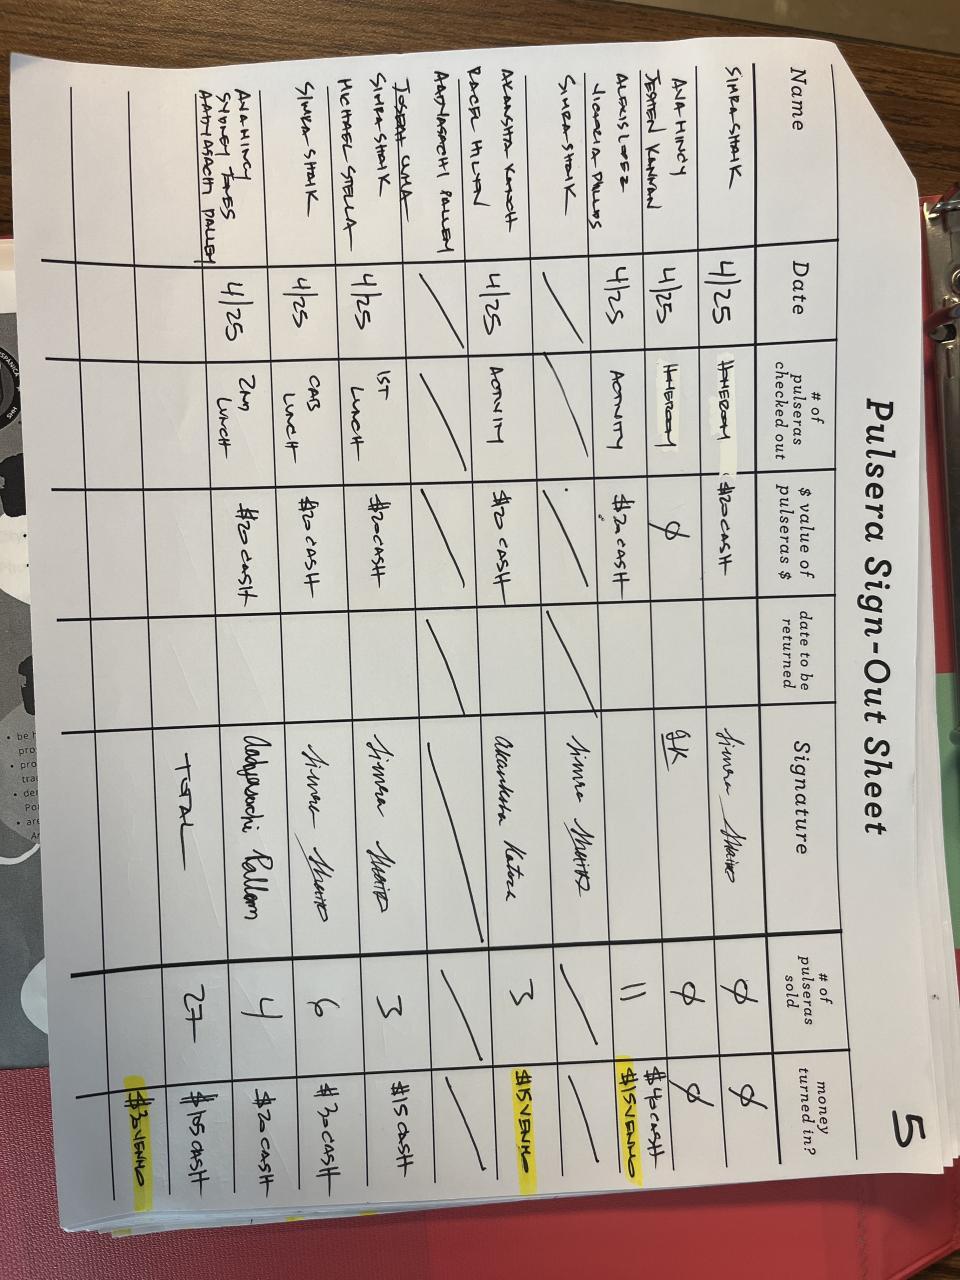 5
Pulsera Sign-Out Sheet
Name Date # of pulseras checked out $ value of pulseras $ date to be returned Signature # of pulseras sold money turned in?
SIMRA SHAIK 4/25 HOMEROOM $20 CASH Simra Shaik Ø Ø
ANA MINCY
JESHEN KANNAN 4/25 HOMEROOM Ø JK Ø Ø
ALEXIS LOPEZ
VICTORIA PHILLIPS 4/25 ACTIVITY $20 CASH 11 $40 CASH
$15 VENMO
SIMRA SHAIK Simra Shaik
AKANSHA KATOCH
4/25 ACTIVITY $20 CASH 3 $15 VENMO
AADYASACHI PALLEM
JOSEPH
SIMRA SHAIK
MICHAEL STELLA 4/25 1ST LUNCH $20 CASH Simra Shaik 3 $15 CASH
SIMRA SHAIK 4/25 CAB LUNCH $20 CASH Simra Shaik 6 $30 CASH
ANA MINCY
SYDNEY JONES
AADYASACHI PALLEM 4/25 2ND LUNCH $20 CASH Aadyasachi Pallem 4 $20 CASH
TOTAL 27 $105 CASH
$30 VENMO